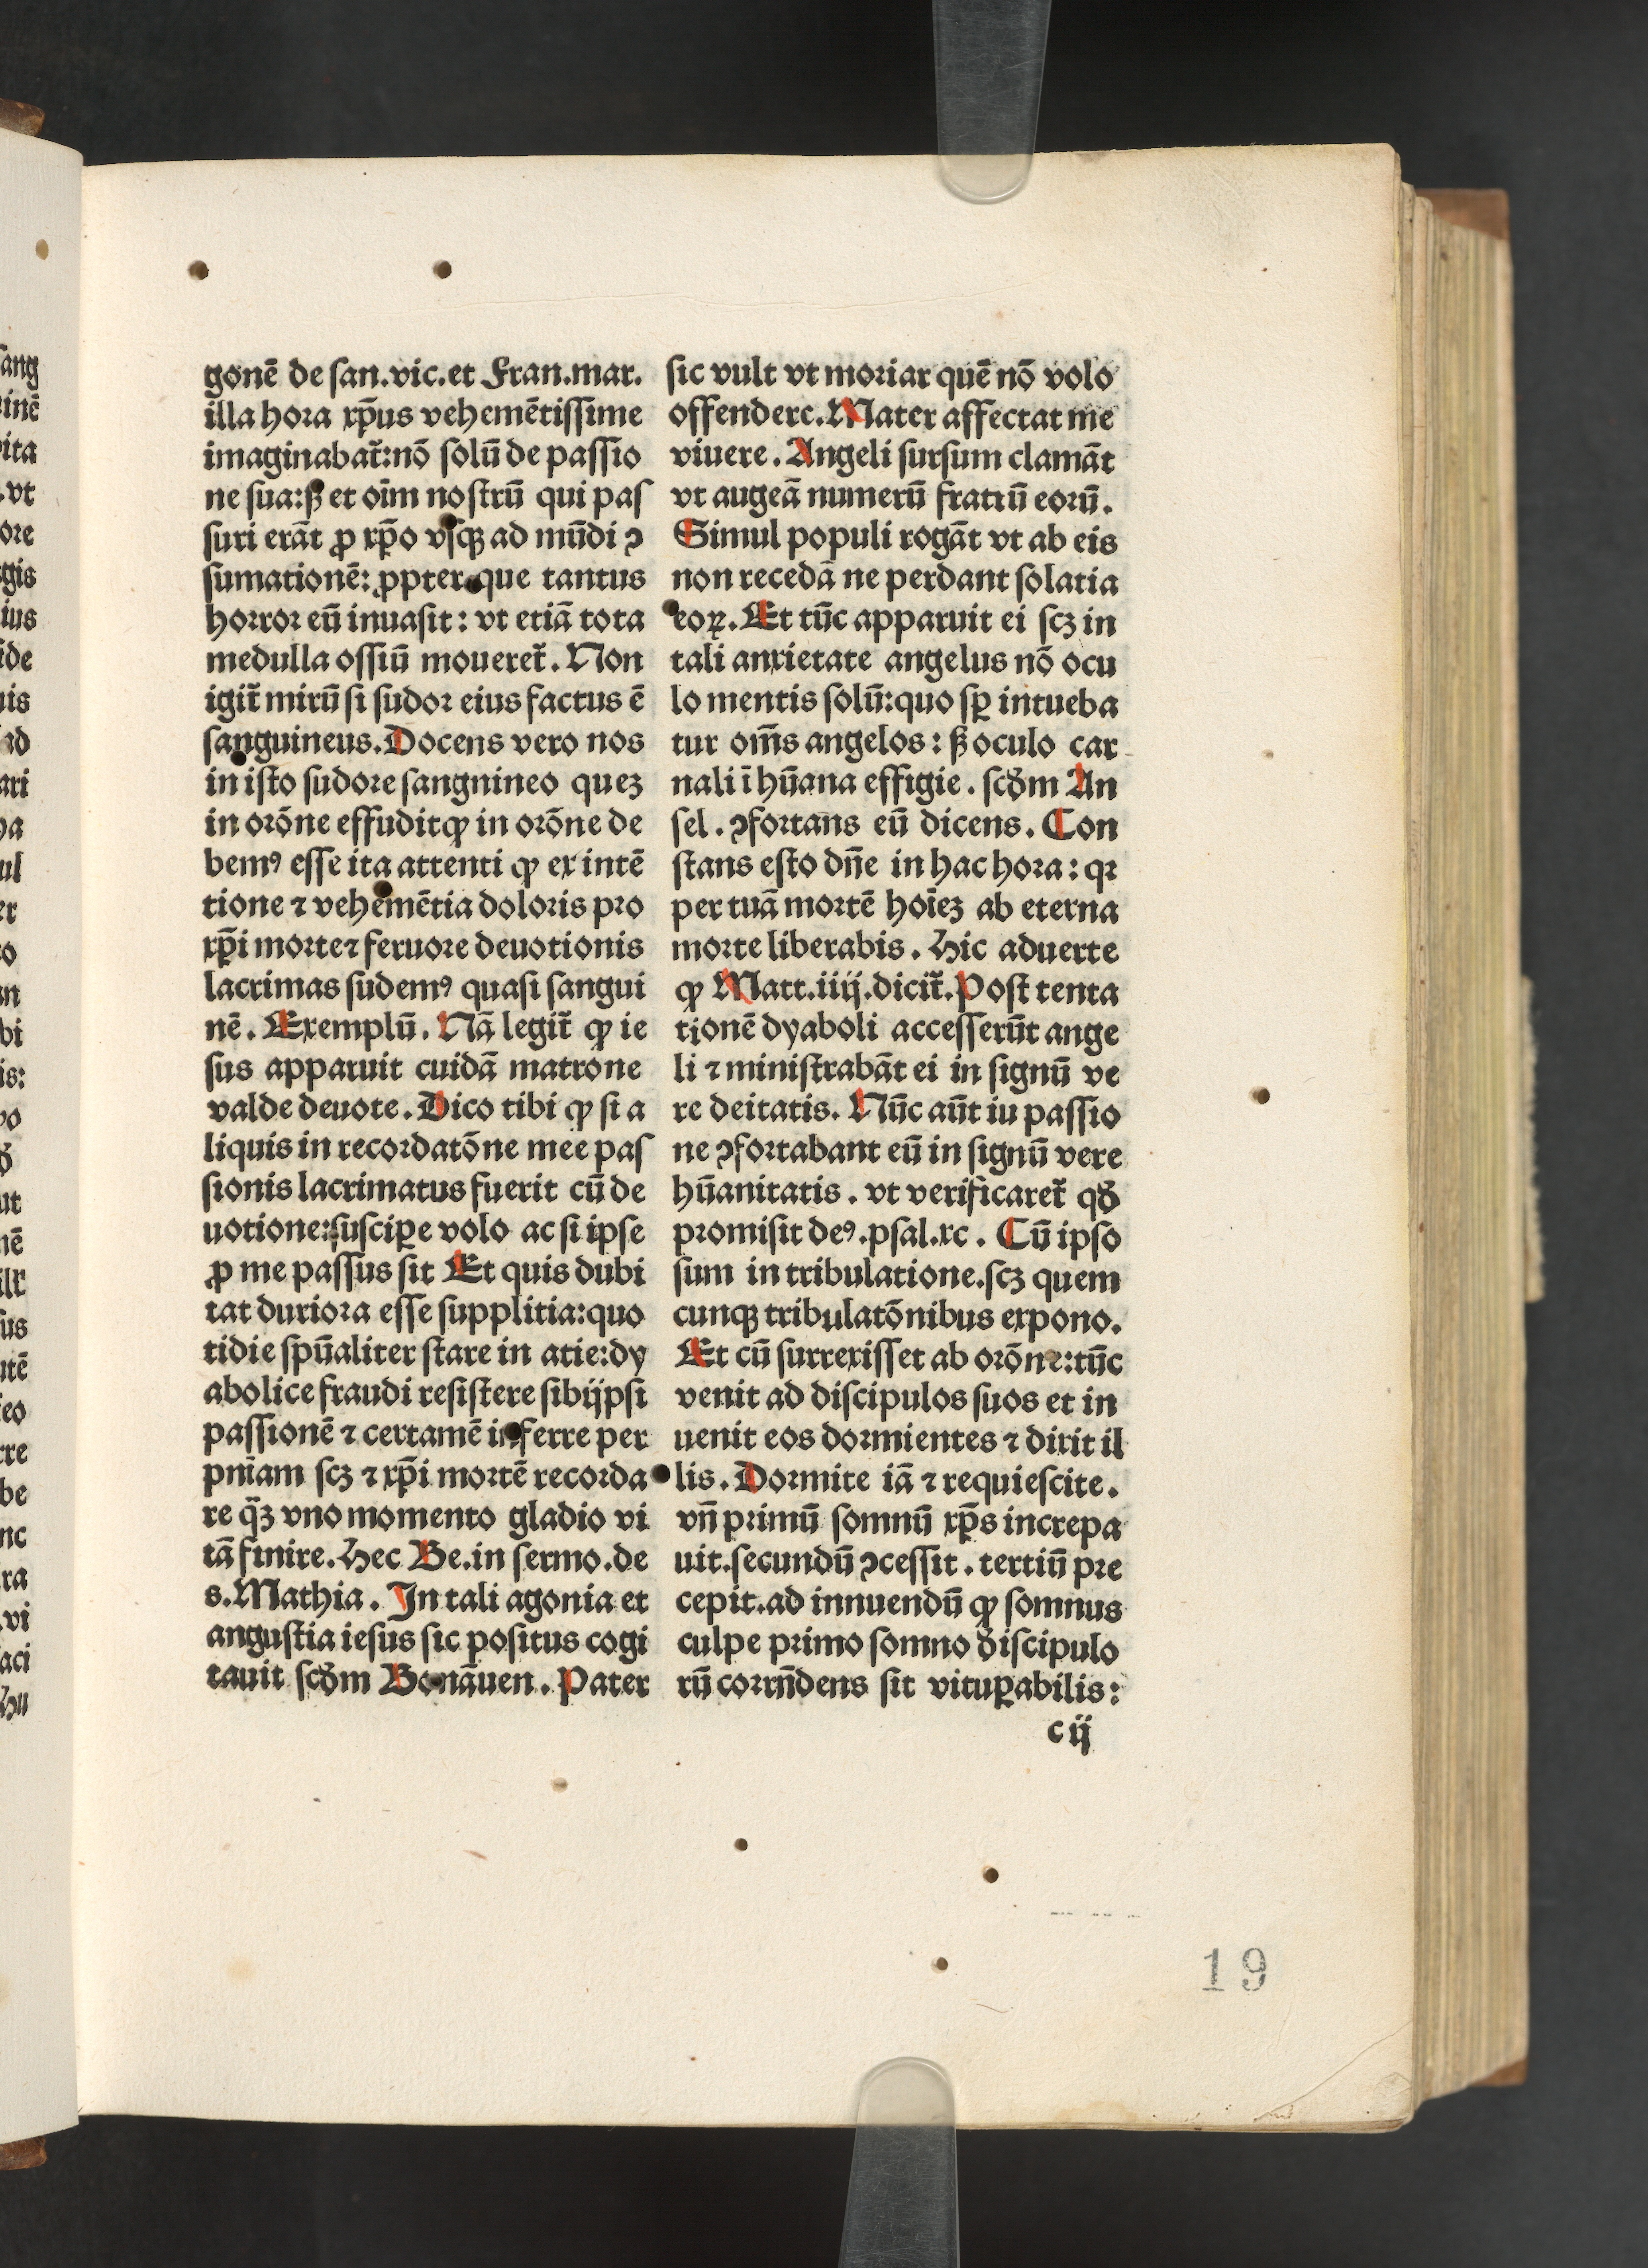 gonē de ſan.vic.et Fran.mar.
illa hora xp̄us vehemētiſſime
imaginabat᷑:nō ſolū de paſſio
ne ſua:ẞ et oīm noſtrū qui paſ
ſuri erāt ꝓ xp̄o vſqꝫ ad mūdi ꝯ
ſumationē: ꝓpter que tantus
horror eū inuaſit: vt etiā tota
medulla oſſiū moueret᷑. Non
igit᷑ mirū ſi ſudor eius factus ē
ſanguineus. Docens vero nos
in iſto ſudore ſangnineo quez
in orōne effudit ꝙ in orōne de
bemꝰ eſſe ita attenti ꝙ ex intē
tione ⁊ vehemētia doloris pro
xp̄i morte ⁊ feruore deuotionis
lacrimas ſudemꝰ quaſi ſangui
nē. Exemplū. Nā legit᷑ ꝙ ie
ſus apparuit cuidā matrone
valde deuote. Dico tibi ꝙ ſi a
liquis in recordatōne mee paſ
ſionis lacrimatus fuerit cū de
uotione:ſuſcipe volo ac ſi ipſe
ꝓ me paſſus ſit Et quis dubi
tat duriora eſſe ſupplitia:quo
tidie ſpūaliter ſtare in atie:dy
abolice fraudi reſiſtere ſibijpſi
paſſionē ⁊ certamē inferre per
pniam ſcꝫ ⁊ xp̄i mortē recorda
re q̄ꝫ vno momento gladio vi
tā finire. Hec Be.in ſermo.de
s.Mathia. In tali agonia et
anguſtia ieſus ſic poſitus cogi
tauit ſcꝺm Bonāuen. Pater
ſic vult vt moriar quē nō volo
offenderc. Mater affectat me
viuere. Angeli ſurſum clamāt
vt augeā numerū fratrū eorū.
Simul populi rogāt vt ab eis
non recedā ne perdant ſolatia
eoꝝ. Et tūc apparuit ei ſcꝫ in
tali anxietate angelus nō ocu
lo mentis ſolū:quo ſꝑ intueba
tur om̄s angelos: ẞ oculo car
nali ī hūana effigie. ſcꝺm An
ſel. ꝯfortans eū dicens. Con
ſtans eſto dn̄e in hac hora: qꝛ
per tuā mortē hoīez ab eterna
morte liberabis. Hic aduerte
ꝙ Matt.iiij.dicit᷑. Poſt tenta
tionē dyaboli acceſſerūt ange
li ⁊ miniſtrabāt ei in ſignū ve
re deitatis. Nūc aūt iu paſſio
ne ꝯfortabant eū in ſignū vere
hūanitatis. vt verificaret᷑ qꝺ
promiſit deꝰ.pſal.xc. Cū ipſo
ſum in tribulatione.ſcꝫ quem
cunqꝫ tribulatōnibus expono.
Et cū ſurrexiſſet ab orōne:tūc
venit ad diſcipulos ſuos et in
uenit eos dormientes ⁊ dixit il
lis. Dormite iā ⁊ requieſcite.
vn̄ primū ſomnū xp̄s increpa
uit.ſecundū ꝯceſſit. tertiū pre
cepit.ad innuendū ꝙ ſomnus
culpe primo ſomno diſcipulo
rū corrn̄dens ſit vituꝑabilis:
c ij
19